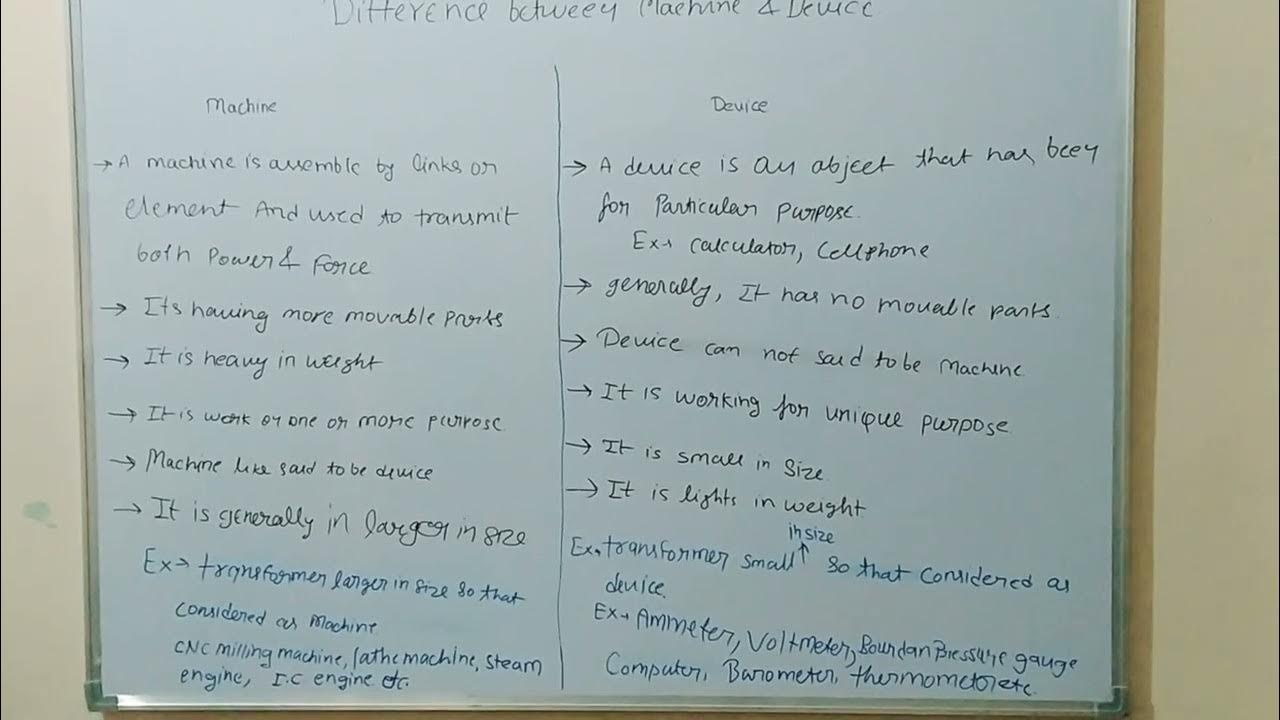 Difference between Machine & Device
Machine
→ A machine is assemble by links or
element And used to transmit
both Power & Force
→ Its having more movable parts
→ It is heavy in weight
→ It is work on one or more purpose
→ Machine like said to be device
→ It is generally in larger in size
Ex→ transformer larger in size so that
considered as machine
CNC milling machine, lathe machine, steam
engine, I.C engine etc.
Device
→ A device is an object that has been
for Particular purpose.
Ex→ calculator, Cellphone
→ generally, It has no movable parts.
→ Device can not said to be machine
→ It is working for unique purpose
→ It is small in size.
→ It is lights in weight
in size
Ex→ transformer small ↑ so that considered as
device.
Ex→ Ammeter, Voltmeter, Bourdan Pressure gauge
Computer, Barometer, thermometer etc.